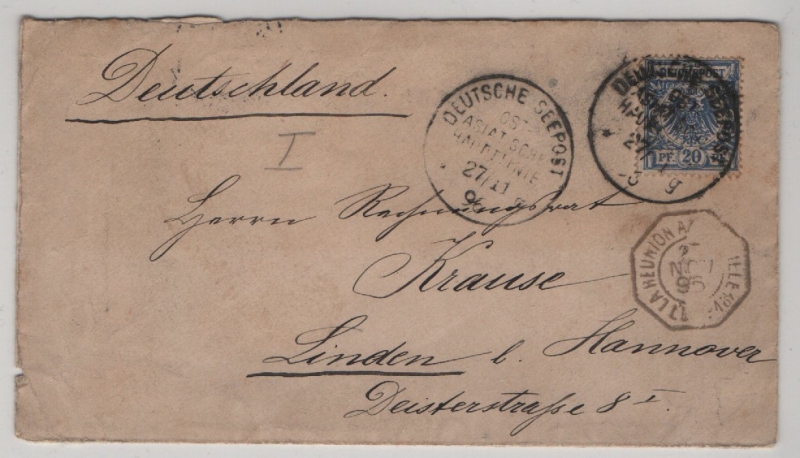 Deutschland.
I
DEUTSCHE SEEPOST
OST-
ASIATISCHE
HAUPTLINIE
27/11
DEUTSCHE SEEPOST
27
g
PF. 20
Herrn Rechnungsrat
Krause
Linden b. Hannover
Deisterstraße 8 I
LA REUNION A
NOV